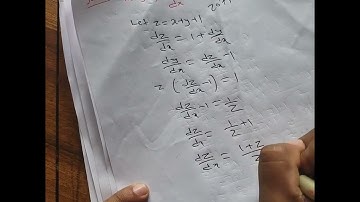 dx
Let z=x+y+1
dz/dx = 1 + dy/dx
dy/dx = dz/dx - 1
z (dz/dx - 1) = 1
dz/dx - 1 = 1/z
dz/dx = 1/z + 1
dz/dx = 1+z/z